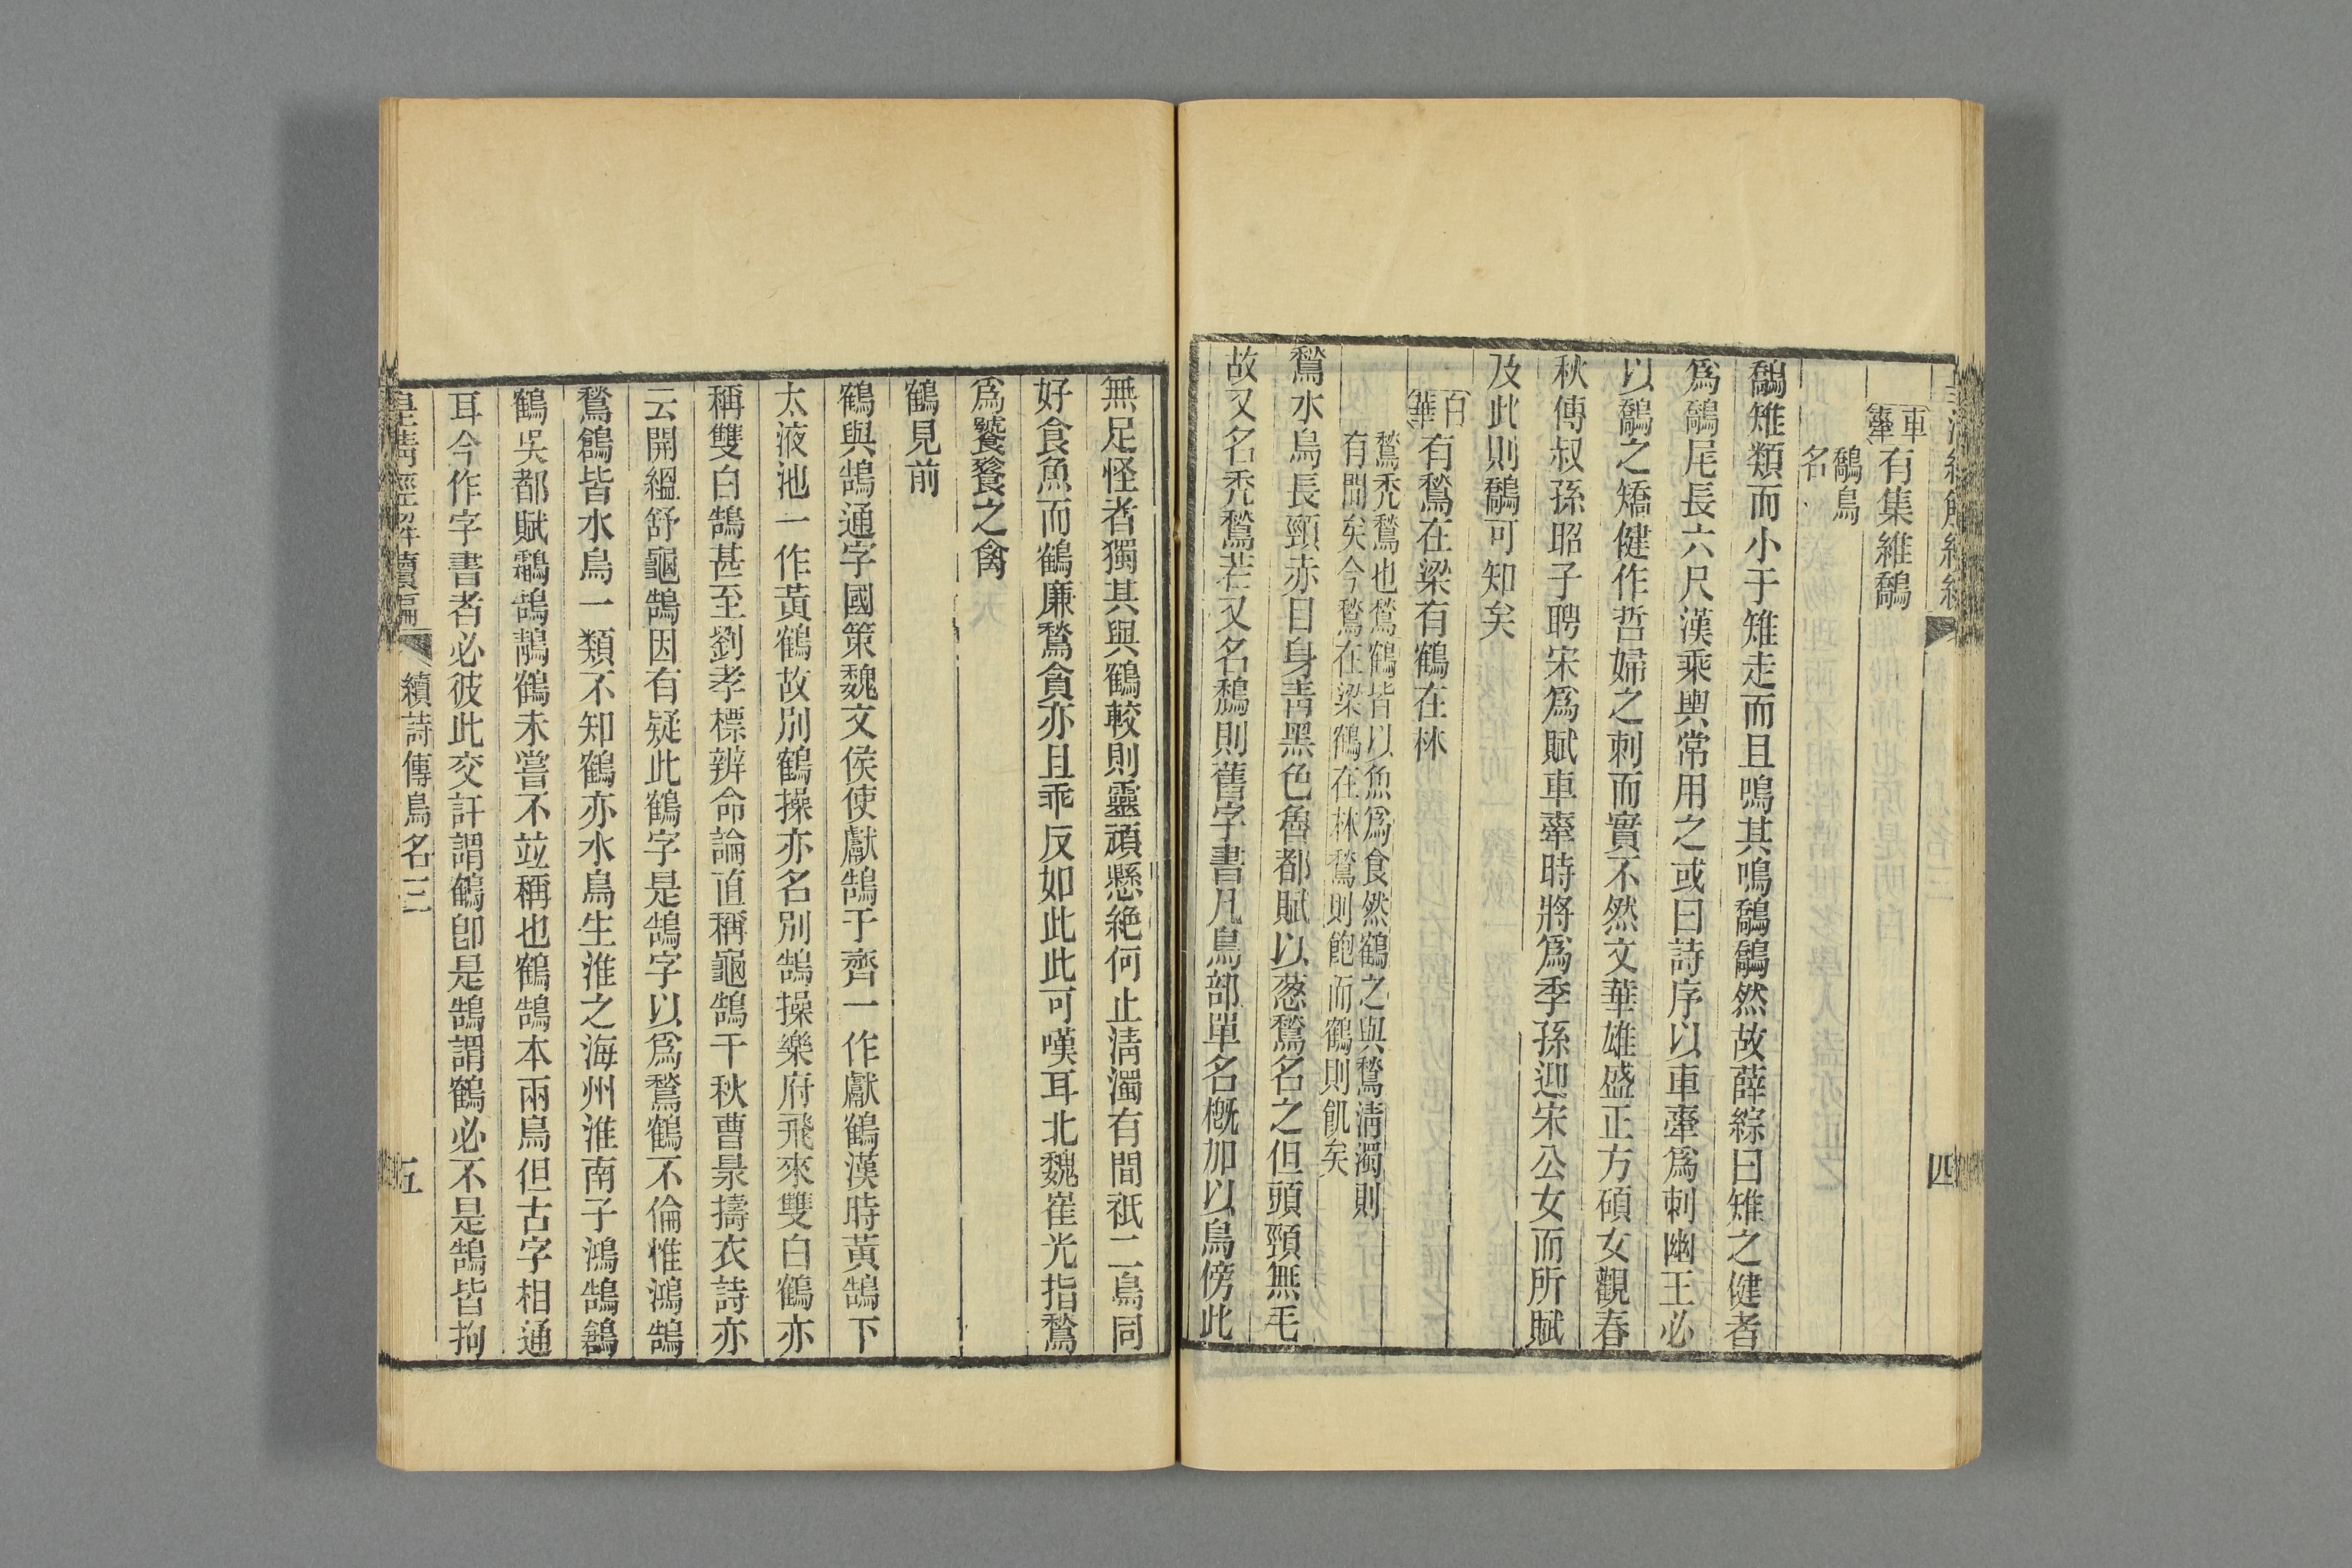 車舝有集維鷮
鷮鳥
名
鷮雉類而小于雉走而且鳴其鳴鷮鷮然故薛綜曰雉之健者
爲鷮尾長六尺漢乘輿常用之或曰詩序以車舝爲刺幽王必
以鷮之矯健作哲婦之刺而實不然文華雄盛正方碩女觀春
秋傳叔孫昭子聘宋爲賦車舝時將爲季孫迎宋公女而所賦
及此則鷮可知矣
白華有鶖在梁有鶴在林
鶖禿鶖也鶖鶴皆以魚爲食然鶴之與鶖淸濁則
有間矣今鶖在梁鶴在林鶖則飽而鶴則飢矣
鶖水鳥長頸赤目身靑黑色魯都賦以葱鶖名之但頭頸無毛
故又名禿鶖若又名鵚則舊字書凡鳥部單名槪加以鳥傍此
四
無足怪者獨其與鶴較則靈頑懸絶何止淸濁有間祇二鳥同
好食魚而鶴廉鶖貪亦且乖反如此此可嘆耳北魏崔光指鶖
爲饕餮之禽
鶴見前
鶴與鵠通字國策魏文侯使獻鵠于齊一作獻鶴漢時黃鵠下
太液池一作黃鶴故別鶴操亦名別鵠操樂府飛來雙白鶴亦
稱雙白鵠甚至劉孝標辨命論直稱龜鵠千秋曹景擣衣詩亦
云開緼舒龜鵠因有疑此鶴字是鵠字以爲鶖鶴不倫惟鴻鵠
鶖鶬皆水鳥一類不知鶴亦水鳥生淮之海州淮南子鴻鵠鶬
鶴吳都賦鸘鵠鶄鶴未嘗不竝稱也鶴鵠本兩鳥但古字相通
耳今作字書者必彼此交訐謂鶴卽是鵠謂鶴必不是鵠皆拘
皇淸經解續編
續詩傳鳥名三
五